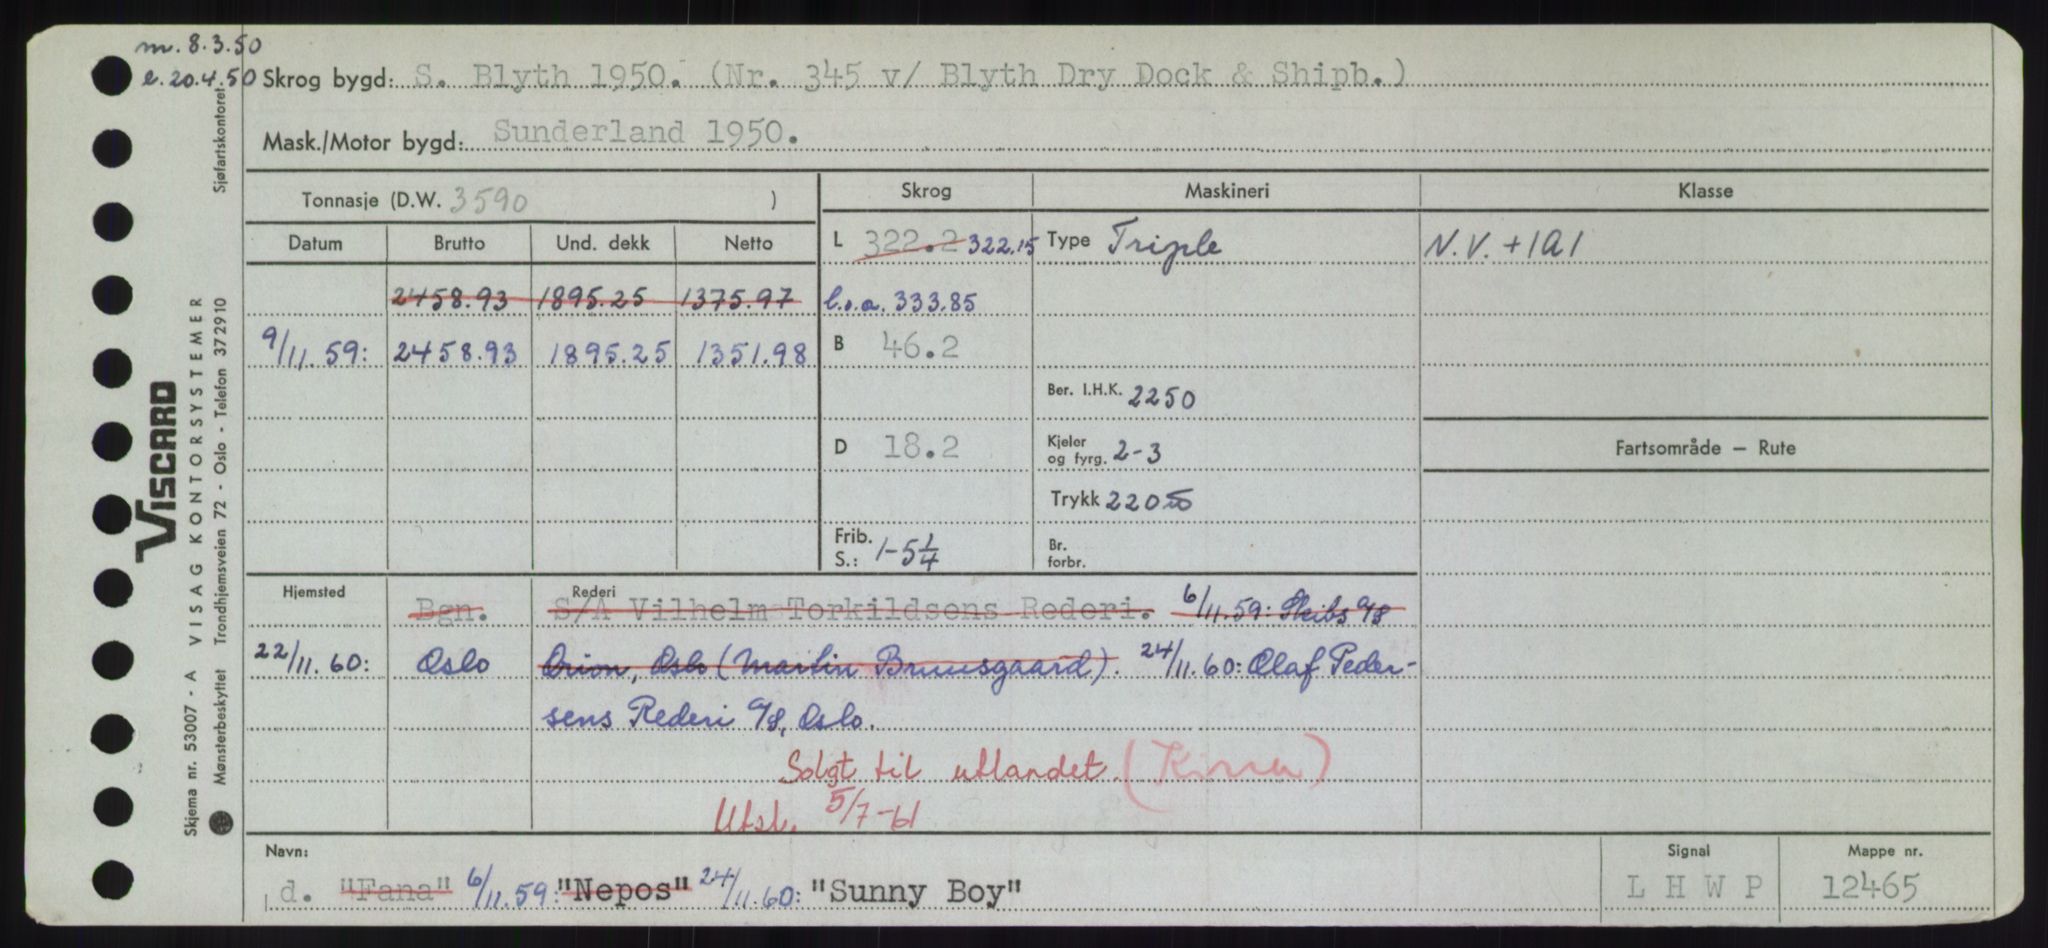 m. 8.3.50
e. 20.4.50 Skrog bygd: S. Blyth 1950. (Nr. 345 v/ Blyth Dry Dock & Shipb.)
Mask./Motor bygd: Sunderland 1950.
Tonnasje (D.W. 3590 )
Skrog Maskineri Klasse
Datum Brutto Und. dekk Netto
L 322.2 322.15 Type Triple N.V. +1A1
2458.93 1895.25 1375.97 l.o.a. 333.85
9/11.59: 2458.93 1895.25 1351.98 B 46.2
Ber. I.H.K. 2250
D 18.2 Kjeler og fyrg. 2-3 Fartsområde — Rute
Trykk 220
Frib. S.: 1-5 1/4 Br. forbr.
Hjemsted Rederi
Bgn. S/A Vilhelm Torkildsens Rederi. 6/11.59: Skibs A/S
22/11.60: Oslo Orion, Oslo (Martin Bruusgaard). 24/11.60: Olaf Peder-
sens Rederi A/S, Oslo.
Solgt til utlandet. (Kina)
Utsl. 5/7-61
Navn: Signal Mappe nr.
d. "Fana" 6/11.59: "Nepos" 24/11.60: "Sunny Boy" L H W P 12465
VISCARD
Skjema nr. 53007 - A VISAG KONTORSYSTEMER
Mønsterbeskyttet Trondhjemsveien 72 - Oslo - Telefon 372910 Sjøfartskontoret